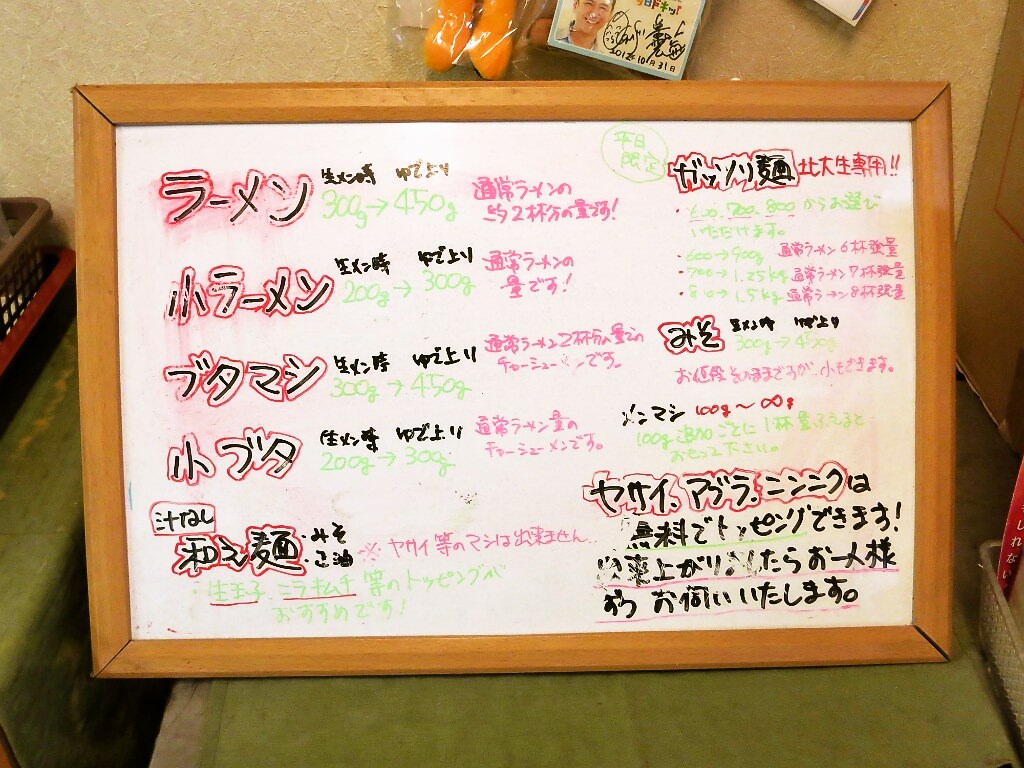 2012 10月31日
ラーメン 生メン時 ゆで上り
300g→450g
通常ラーメンの
約2杯分の量です!
小ラーメン 生メン時 ゆで上り
200g→300g
通常ラーメンの
量です!
ブタマシ 生メン時 ゆで上り
300g→450g
通常ラーメン2杯分の量の
チャーシューメンです。
小ブタ 生メン時 ゆで上り
200g→300g
通常ラーメン量の
チャーシューメンです。
汁なし
和え麺 ・みそ
・正油
※ヤサイ等のマシは出来ません..
・生玉子 ニラキムチ 等のトッピングが
おすすめです!
平日
限定
ガッツリ麺 北大生専用!!
・600、700、800 からお選び
いただけます。
・600→900g 通常ラーメン6杯強量
・700→1.25kg 通常ラーメン7杯強量
・800→1.5kg 通常ラーメン8杯強量
みそ 生メン時 ゆで上り
300g→450g
お値段そのままですが、小もできます。
メンマシ 100g〜∞g
100g追加ごとに1杯量ふえると
おもって下さい。
ヤサイ、アブラ、ニンニクは
無料でトッピングできます!
上がりましたらお一人様
ずつ お伺いいたします。
しれない